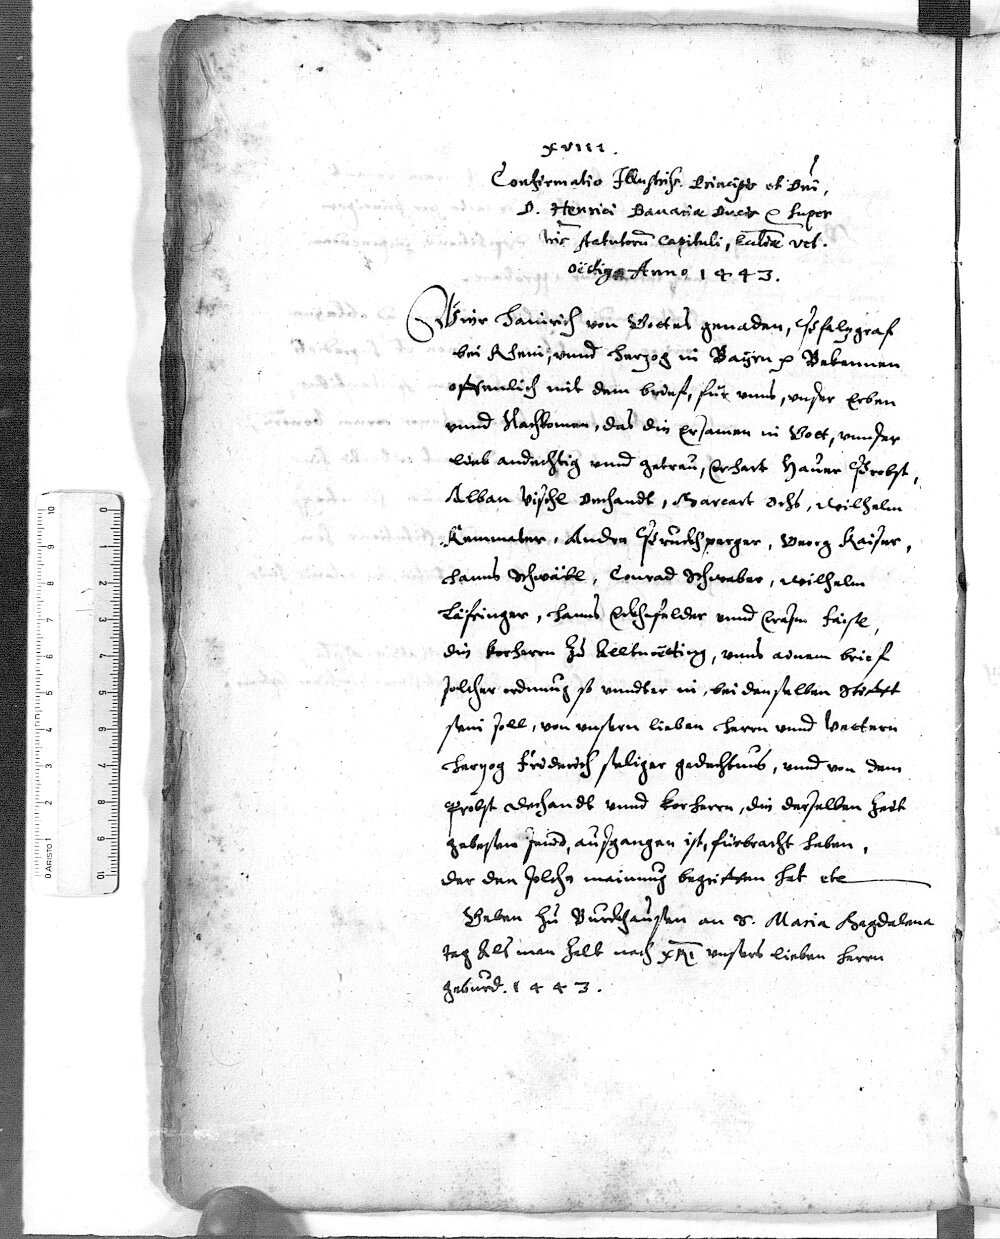 xviii.
Confirmatio Illustriss. Principis et Dni,
D. Henrici Bavariæ Ducis ꝛc super
statutorũ Capituli, Eccliæ vet.
öttigæ Anno 1443.
Wir Hainrich von Gottes genaden, Pfalzgraf
bei Rhein, vnnd Herzog in Bayrn ꝛc Bekennen
offenlich mit dem brief, für vnns, vnser Erben
vnnd Nachkomen, das die Ersamen in Gott, vnnser
lieb andechtig vnnd getreu, Erhart Hauer Probst,
Alban Vischl Dechandt, Marcart Ochs, Wilhelm
Kemnater, Andre Pruckhperger, Georg Kaiser,
Hanns Schwäbl, Conrad Schwaber, Wilhelm
Täfringer, Hanns Eckhfelder vnnd Erasm
die korherrn zu Alltnötting, vnns ainem brief
solcher ordnung so vnndter in, bei denselben Stifft
sein soll, von vnsern lieben Herrn vnnd Vettern
Herzog Friderich seliger gedechtnus, vnnd von dem
Probst Dechandt vnnd korherrn, die derselben Zeit
gebesen seind, ausgangen ist, fürbracht haben,
der den solche mainung begriffen hat etc
Geben zu Burckhausen an S. Maria Magdalena
tag Als man zalt nach xpi vnsers lieben Herrn
geburd. 1443.